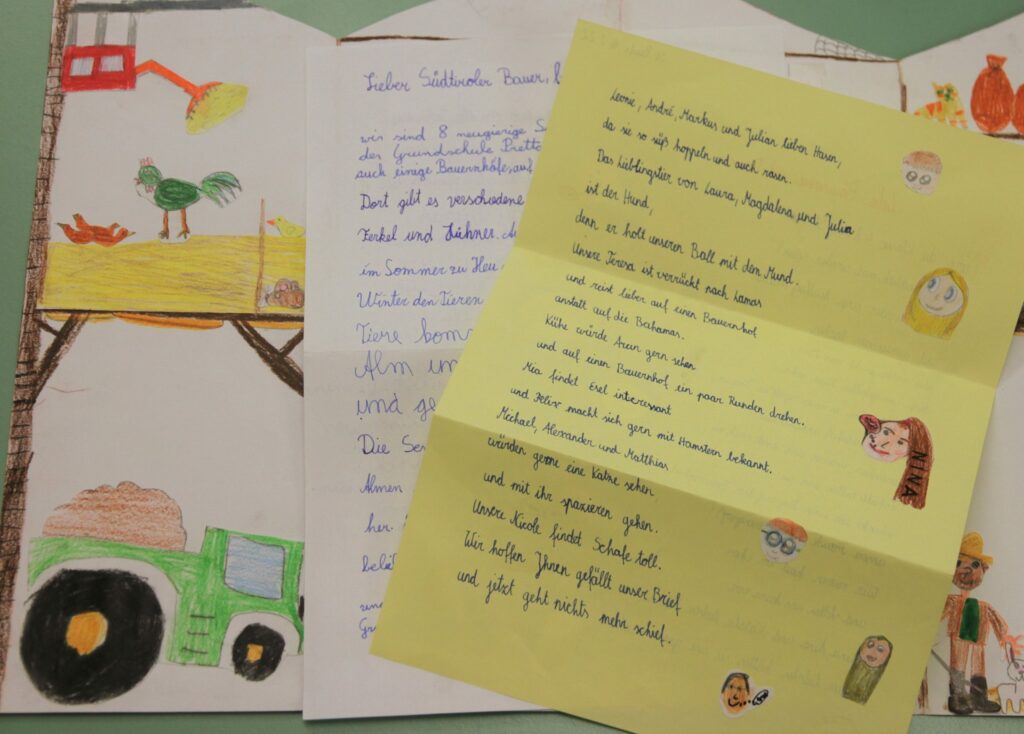 Lieber Südtiroler Bauer,
wir sind 8 neugierige
des Grundschule Prettau
auch einige Bauernhöfe auf
Dort gibt es verschiedene
Ferkel und Hühner.
im Sommer zu Heu
Winter den Tieren
Tiere
Alm
und
Die
Almen
her.
und
Leonie, André, Markus und Julian lieben Hasen,
da sie so süß hoppeln und auch rasen.
Das Lieblingstier von Laura, Magdalena und Julia
ist der Hund,
denn er holt unseren Ball mit dem Mund.
Unsere Teresa ist verrückt nach Lamas
und reist lieber auf einen Bauernhof
anstatt auf die Bahamas.
Kühe würde Arun gern sehen
und auf einen Bauernhof ein paar Runden drehen.
Mia findet Esel interessant
und Felix macht sich gern mit Hamstern bekannt.
Michael, Alexander und Matthias
würden gerne eine Katze sehen
und mit ihr spazieren gehen.
Unsere Nicole findet Schafe toll.
Wir hoffen Ihnen gefällt unser Brief
und jetzt geht nichts mehr schief.
NINA